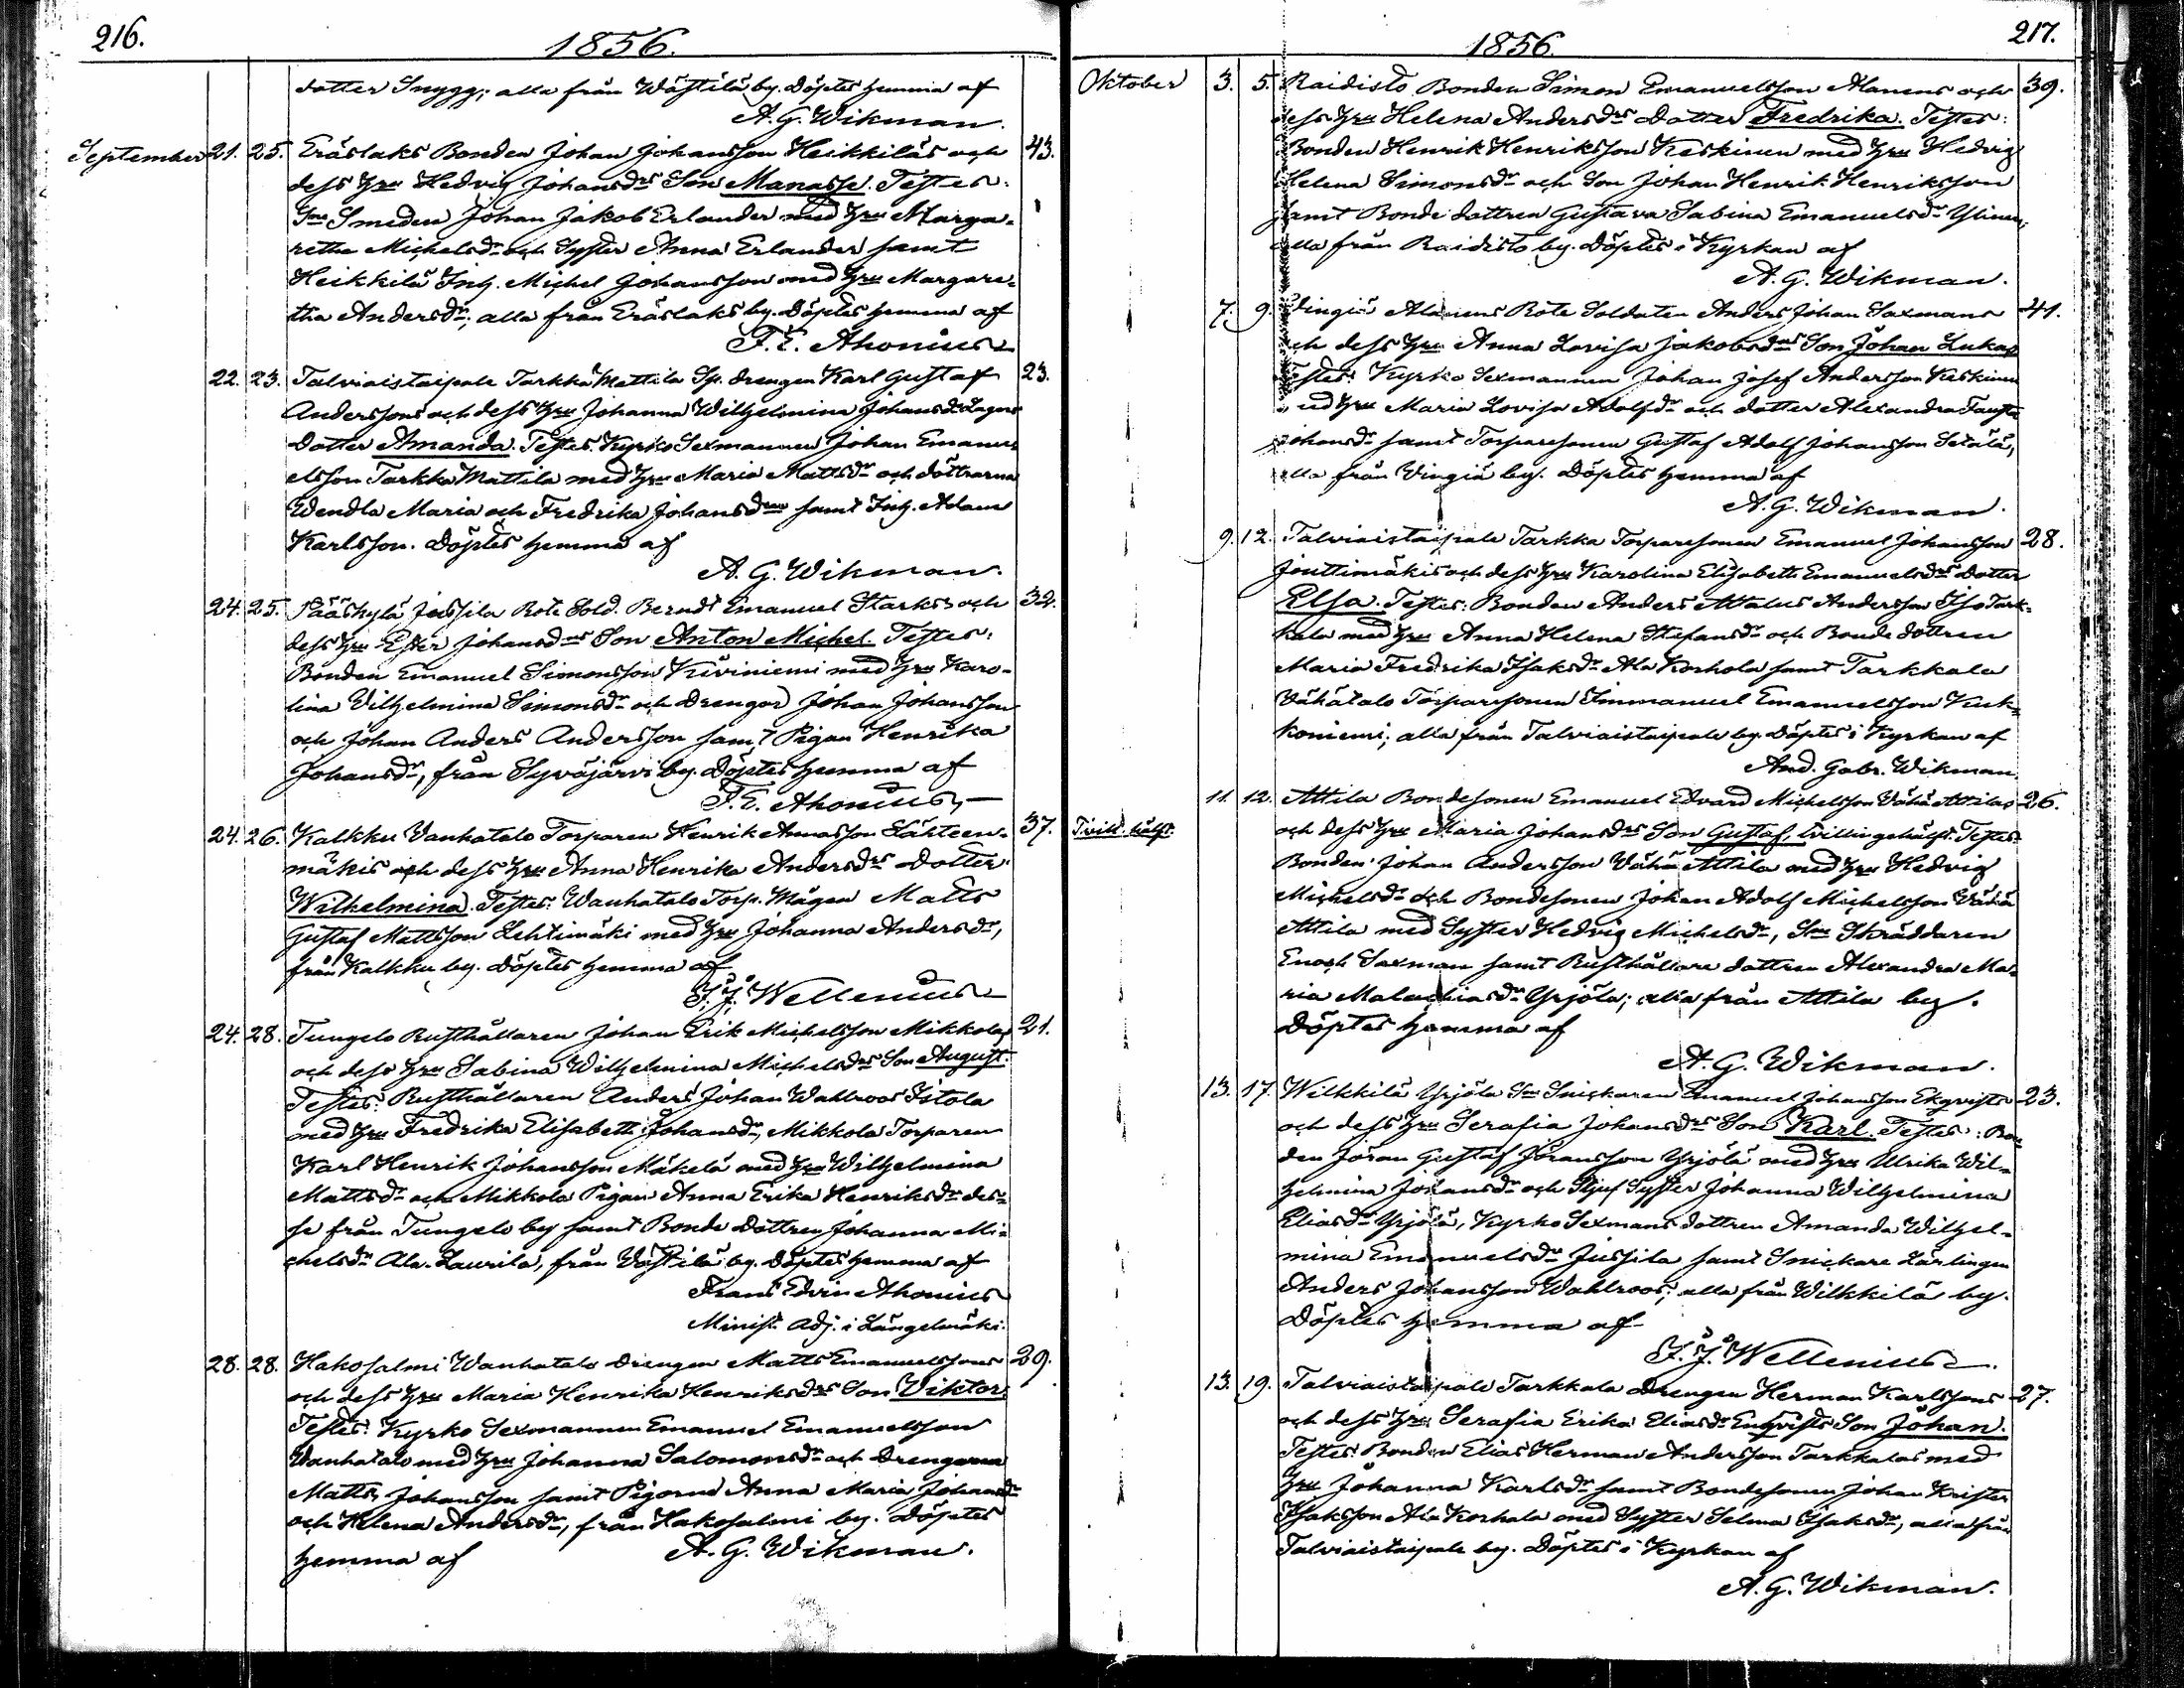 216.
1856.
dotter Snygg; alla från Wästilä by. Döptes hemma af
A. G. Wikman.
September 21. 25. Eräslaks Bonden Johan Johansson Heikkiläs och 43.
dess Hru Hedvig Johansdrs Son Manasse. Testes:
Sme Smeden Johan Jakob Erlander med Hru Marga-
retha Michelsdr och Syster Anna Erlander samt
Heikkilä Inh. Michel Johansson med Hru Margare-
tha Andersdr; alla från Eräslaks by. Döptes hemma af
F. E. Ahonius
22. 23. Talviaistaipale Tarkka Mattila Sp. drengen Karl Gustaf 23.
Anderssons och dess Hru Johanna Wilhelmina Johansdr Lagers
Dotter Amanda. Testes: Kyrko Sexmannen Johan Emanu-
elsson Tarkka Mattila med Hru Maria Mattsdr och döttrarna
Wendla Maria och Fredrika Johansdrar samt Inh. Adam
Karlsson. Döptes hemma af
A. G. Wikman.
24. 25. Pääskylä Jussila Rote Sold. Berndt Emanuel Starks och 32.
dess Hru Ester Johansdrs Son Anton Michel. Testes:
Bonden Emanuel Simonsson Kiviniemi med Hru Karo-
lina Vilhelmina Simonsdr och Drengar Johan Johansson
och Johan Anders Andersson samt Pigan Henrika
Johansdr, från Syväjärvi by. Döptes hemma af
F. E. Ahonius
24. 26. Kalkku Vanhatalo Torparen Henrik Annasson Lähteen- 37.
mäkis och dess Hru Anna Henrika Andersdrs Dotter
Wilhelmina. Testes: Wanhatalo Torp. Mågen Matts
Gustaf Mattsson Lehtimäki med Hru Johanna Andersdr,
från Kalkku by. Döptes hemma af
J. J. Wellenius
24. 28. Tungelo Rusthållaren Johan Erik Michelsson Mikkolas 21.
och dess Hru Sabina Wilhelmina Michelsdrs Son August.
Testes: Rusthållaren Anders Johan Wahlroos Istola
med Hru Fredrika Elisabeth Johansdr, Mikkola Torparen
Karl Henrik Johansson Mäkelä med Hru Wilhelmina
Mattsdr och Mikkola Pigan Anna Erika Henriksdr des-
se från Tungelo by samt Bonde Dottren Johanna Mi-
chelsdr Ala-Laurila, från Västilä by. Döptes hemma af
Frans Edvin Ahonius
Minist. Adj. i Längelmäki.
28. 28. Hakosalmi Wanhatalo Drengen Matts Emanuelssons 29.
och dess Hru Maria Henrika Henriksdrs Son Viktor.
Testes: Kyrko Sexmannen Emanuel Emanuelsson
Vanhatalo med Hru Johanna Salomonsdr och Drengarna
Matts Johansson samt Pigorna Anna Maria Johansdr
och Helena Andersdr, från Hakosalmi by. Döptes
hemma af A. G. Wikman.
217.
1856.
Oktober 3. 5. Raidisto Bonden Simon Emanuelsson Alanens och 39.
dess Hru Helena Andersdrs Dotter Fredrika. Testes:
Bonden Henrik Henriksson Keskinen med Hru Hedvig
Helena Simonsdr och Son Johan Henrik Henriksson
samt Bonde dottren Gustava Sabina Emanuelsdr Ylinen;
alla från Raidisto by. Döptes i Kyrkan af
A. G. Wikman.
7. 9. Vingiä Alanens Rote Soldaten Anders Johan Saxmans 41.
och dess Hru Anna Lovisa Jakobsdrs Son Johan Lukas
Testes: Kyrko Sexmannen Johan Josef Andersson Keskinen
med Hru Maria Lovisa Adolfdr och dotter Alexandra Fausta
Johansdr samt Torparesonen Gustaf Adolf Johansson Setälä,
alla från Vingiä by. Döptes hemma af
A. G. Wikman.
9. 12. Talviaistaipale Tarkka Torparesonen Emanuel Johansson 28.
Jouttimäkis och dess Hru Karolina Elisabeth Emanuelsdrs Dotter
Elsa. Testes: Bonden Anders Attalus Andersson Iso Tark-
kala med Hru Anna Helena Stefansdr och Bonde dottren
Maria Fredrika Isaksdr Ala Korhola samt Tarkkala
Vähätalo Torparsonen Immanuel Emanuelsson Kuk-
koniemi; alla från Talviaistaipale by. Döptes i Kyrkan af
And. Gabr. Wikman.
11. 12. Attila Bondesonen Emanuel Edvard Michelsson Vähä Attilas 26.
Tvill. hälft. och dess Hru Maria Johansdrs Son Gustaf, tvillingehälft. Testes:
Bonden Johan Andersson Vähä Attila med Hru Hedvig
Michelsdr och Bondesonen Johan Adolf Michelsson Vähä
Attila med Syster Hedvig Michelsdr, Sme Skräddaren
Enoch Saxman samt Rusthållare dottren Alexandra Ma-
ria Malachiasdr Yrjölä; alla från Attila by.
Döptes hemma af
A. G. Wikman.
13. 17. Wilkkilä Yrjölä Sme Snickaren Emanuel Johansson Ekqvists 23.
och dess Hru Serafia Johansdrs Son Karl. Testes: Bon-
den Göran Gustaf Göransson Yrjölä med Hru Ulrika Wil-
helmina Johansdr och Stjuf Syster Johanna Wilhelmina
Eliasdr Yrjölä, Kyrko Sexmans dottren Amanda Wilhel-
mina Emanuelsdr Jussila samt Snickare Lärlingen
Anders Johansson Wahlroos; alla från Wilkkilä by.
Döptes hemma af
J. J. Wellenius
13. 19. Talviaistaipale Tarkkala Drengen Herman Karlssons 27.
och dess Hru Serafia Erika Eliasdr Enqvists Son Johan.
Testes: Bonden Elias Herman Andersson Tarkkalas med
Hru Johanna Karlsdr samt Bondesonen Johan Krister
Isaksson Ala Korhala med Syster Selma Isaksdr, alla från
Talviaistaipale by. Döptes i Kyrkan af
A. G. Wikman.